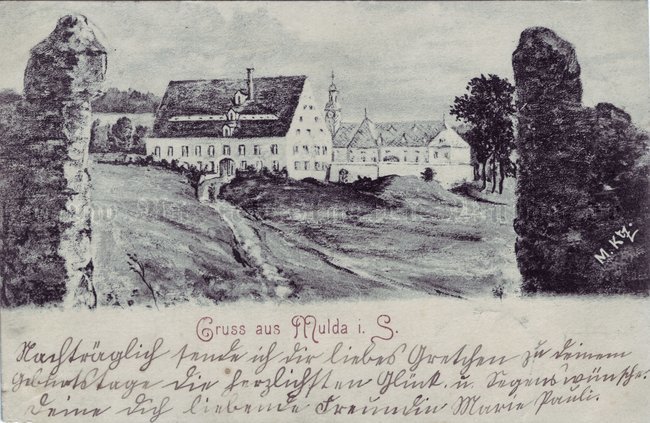 M. Kg.
Gruss aus Mulda i. S.
Nachträglich sende ich dir liebes Gretchen zu deinem
Geburtstage die herzlichsten Glück. u. Segenswünsche.
Deine dich liebende Freundin Marie Pauli.